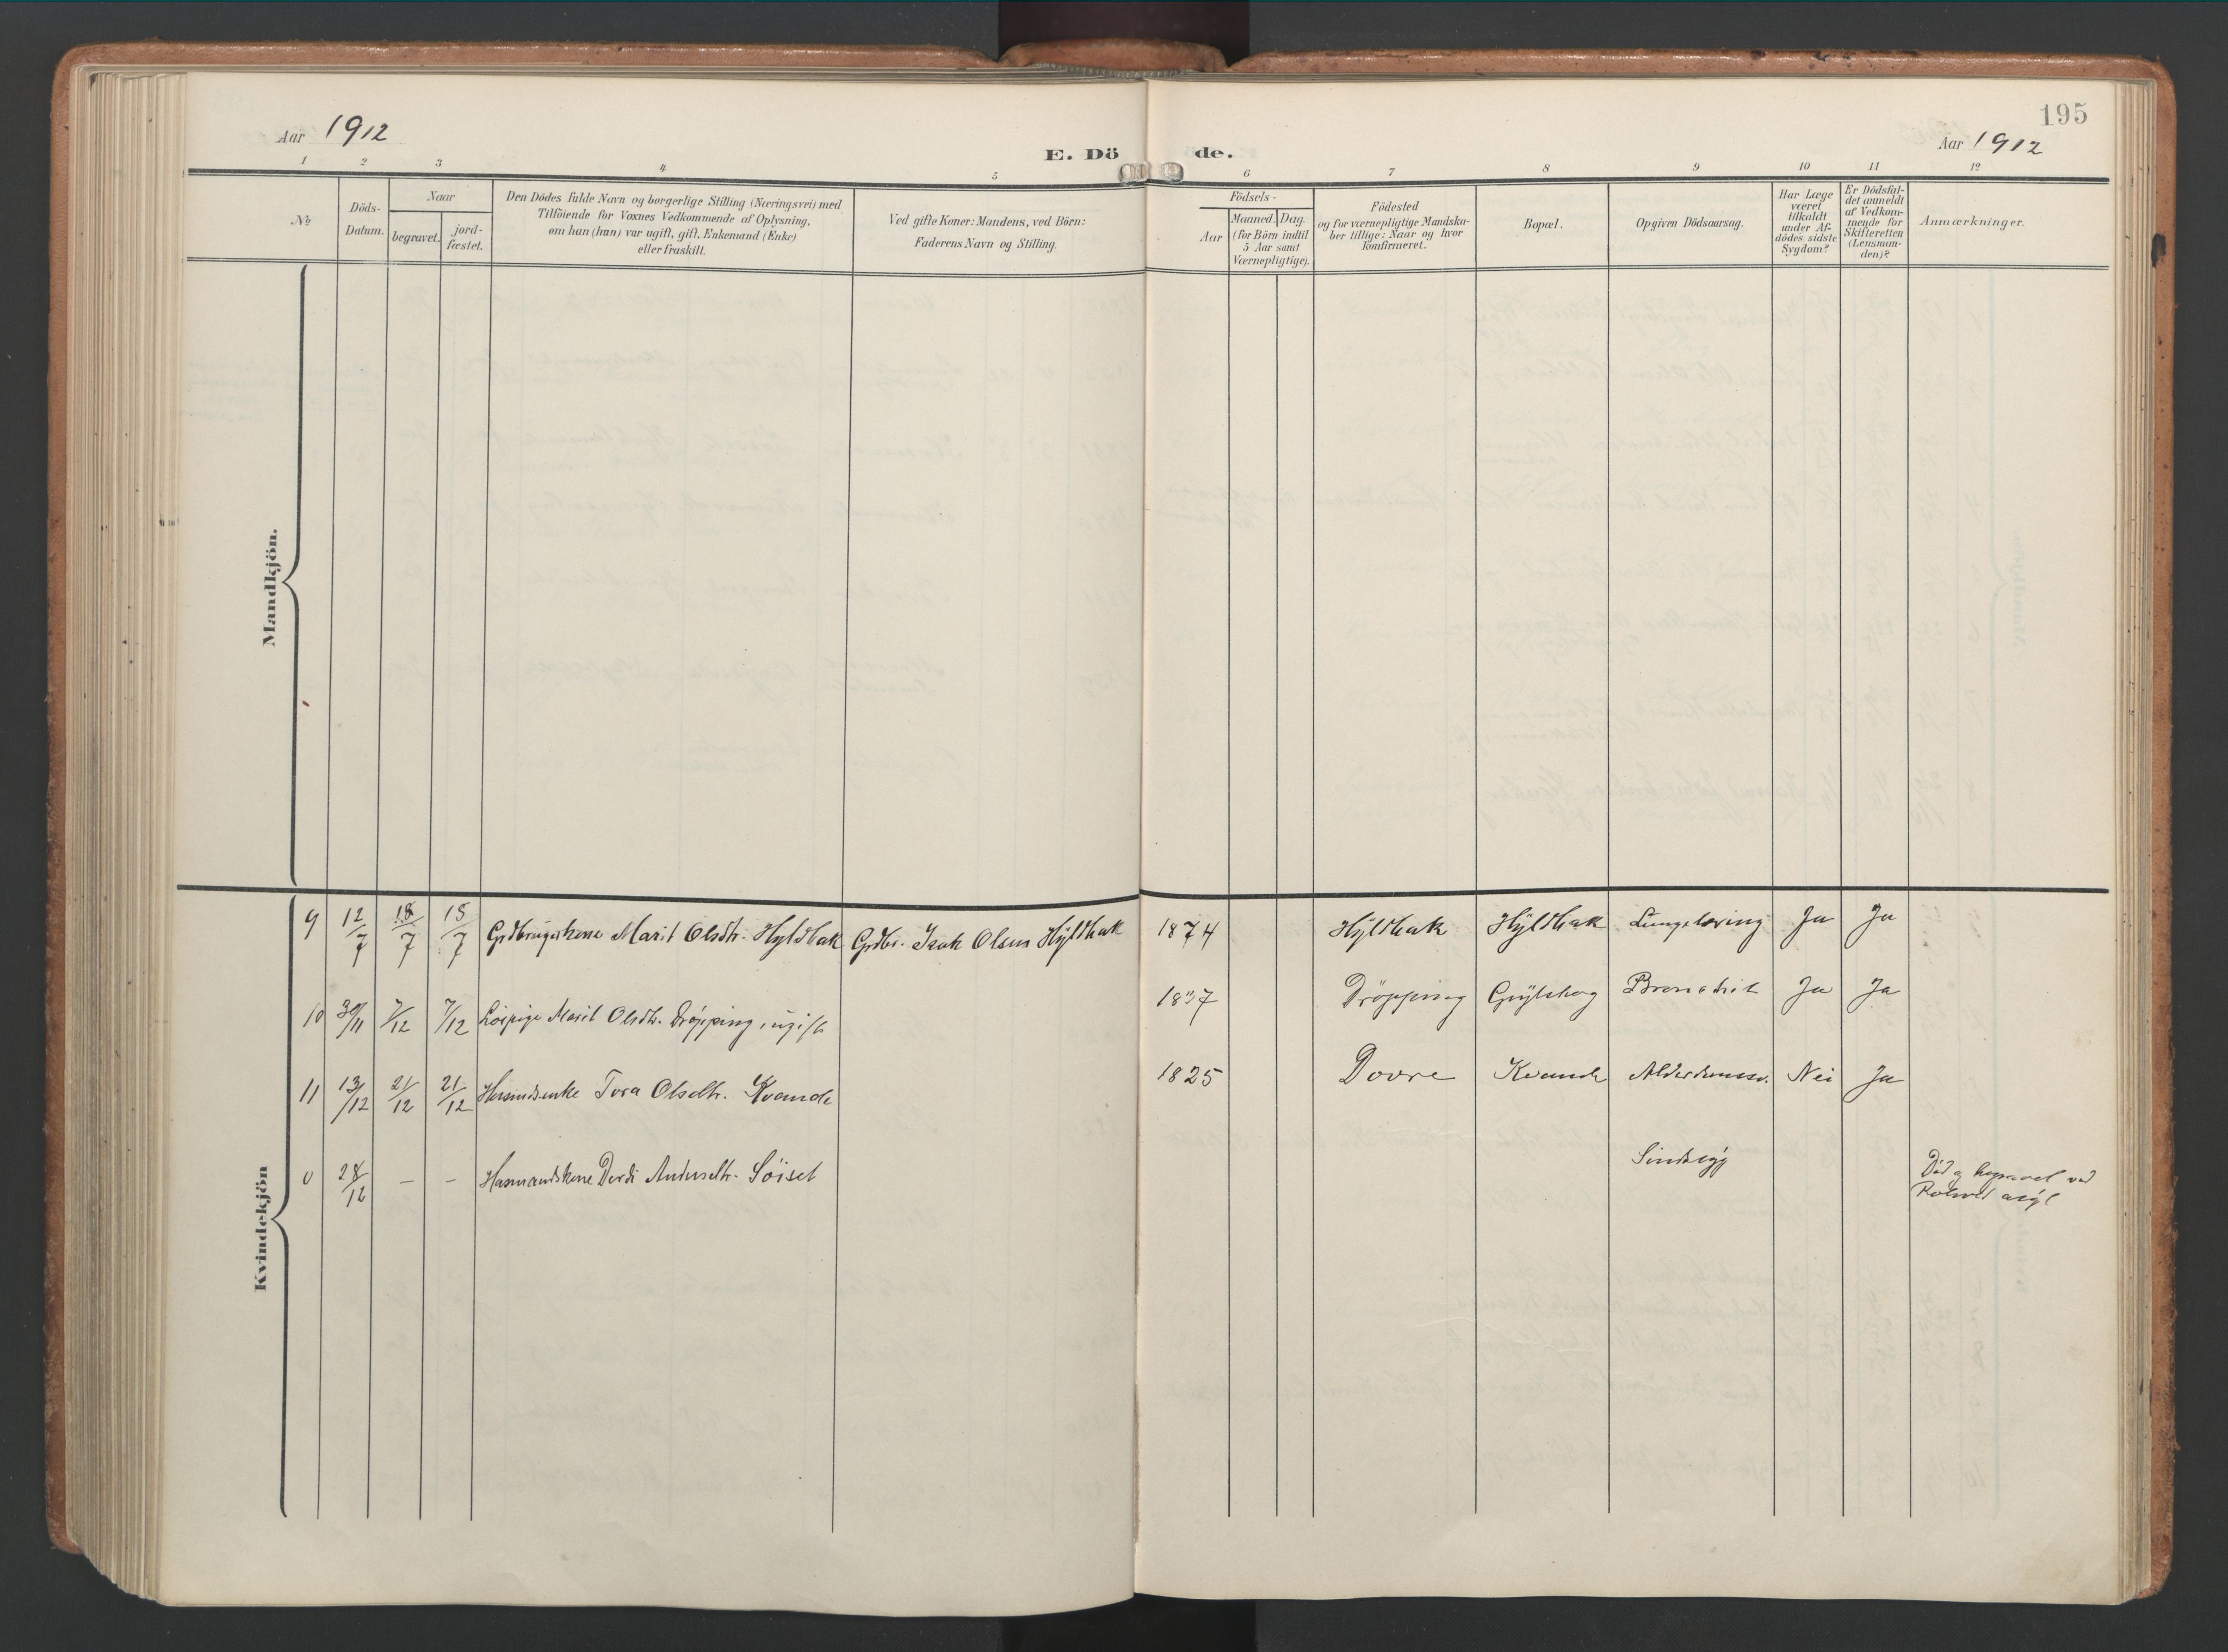 195
Aar 1912
Aar 1912
E. Dö de.
1 2 3 4 5 6 7 8 9 10 11 12
No
Döds-
Datum.
Naar
begravet.
jord-
fæstet.
Den Dödes fulde Navn og borgerlige Stilling (Næringsvei) med
Tilföiende for Voxnes Vedkommende af Oplysning,
om han (hun) var ugift, gift, Enkemand (Enke)
eller fraskilt.
Ved gifte Koner: Mandens, ved Börn:
Faderens Navn og Stilling.
Födsels-
Aar
Maaned. Dag.
(for Börn indtil
5 Aar samt
Værnepligtige).
Födested
og for værnepligtige Mandska-
ber tillige: Naar og hvor
konfirmeret.
Bopæl.
Opgiven Dödsaarsag.
Har Læge
været
tilkaldt
under Af-
dödes sidste
Sygdom?
Er Dödsfal-
det anmeldt
af Vedkom-
mende for
Skifteretten
(Lensman-
den)?
Anmærkninger.
Mandkjön.
Kvindekjön
9 12/7 18/7 18/7 Grdbrugerkone Marit Olsdtr. Hyldbak Grdbr. Isak Olsen Hyldbak 1874 Hyldbak Hyldbak Ja Ja
10 30/11 7/12 7/12 Marit Olsdtr. Dröpping, ugift 1837 Dröpping Ja Ja
11 13/12 21/12 21/12 Husmdsenke Tora Olsdtr. Kvande 1825 Dovre Kvande Alderdomssv. Nei Ja
0 28/12 — — Husmandskone Dordi Andersdtr. Söiset Sindssyg
Död og begravet ved
Rotvold asyl